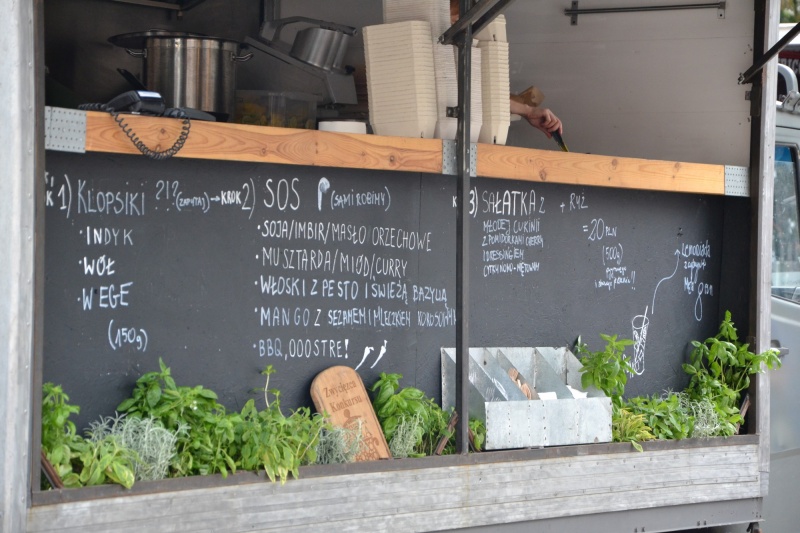 1) KLOPSIKI ?!? (ZAPYTAJ) → KROK 2) SOS (SAMI ROBIMY)
3) SAŁATKA Z + RYŻ
• INDYK
• WÓŁ
• WEGE
(150g)
• SOJA/IMBIR/MASŁO ORZECHOWE
• MUSZTARDA/MIÓD/CURRY
• WŁOSKI Z PESTO I ŚWIEŻĄ BAZYLIĄ
• MANGO Z SEZAMEM I MLECZKIEM KOKOSOWYM
• BBQ,OOOSTRE!
MŁODEJ CUKINII
Z POMIDORKAMI CHERRY
I DRESSINGIEM
CYTRYNOWO-MIĘTOWYM
=20 PLN
(500g)
LEMONIADA
Zwycięzca
Konkursu